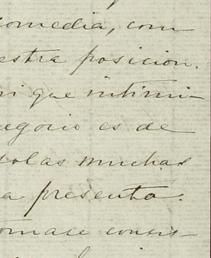 comedia, com
estra posicion.
ni que intimi-
egorio es de
solas muchas
a presenta.
tomase consis-